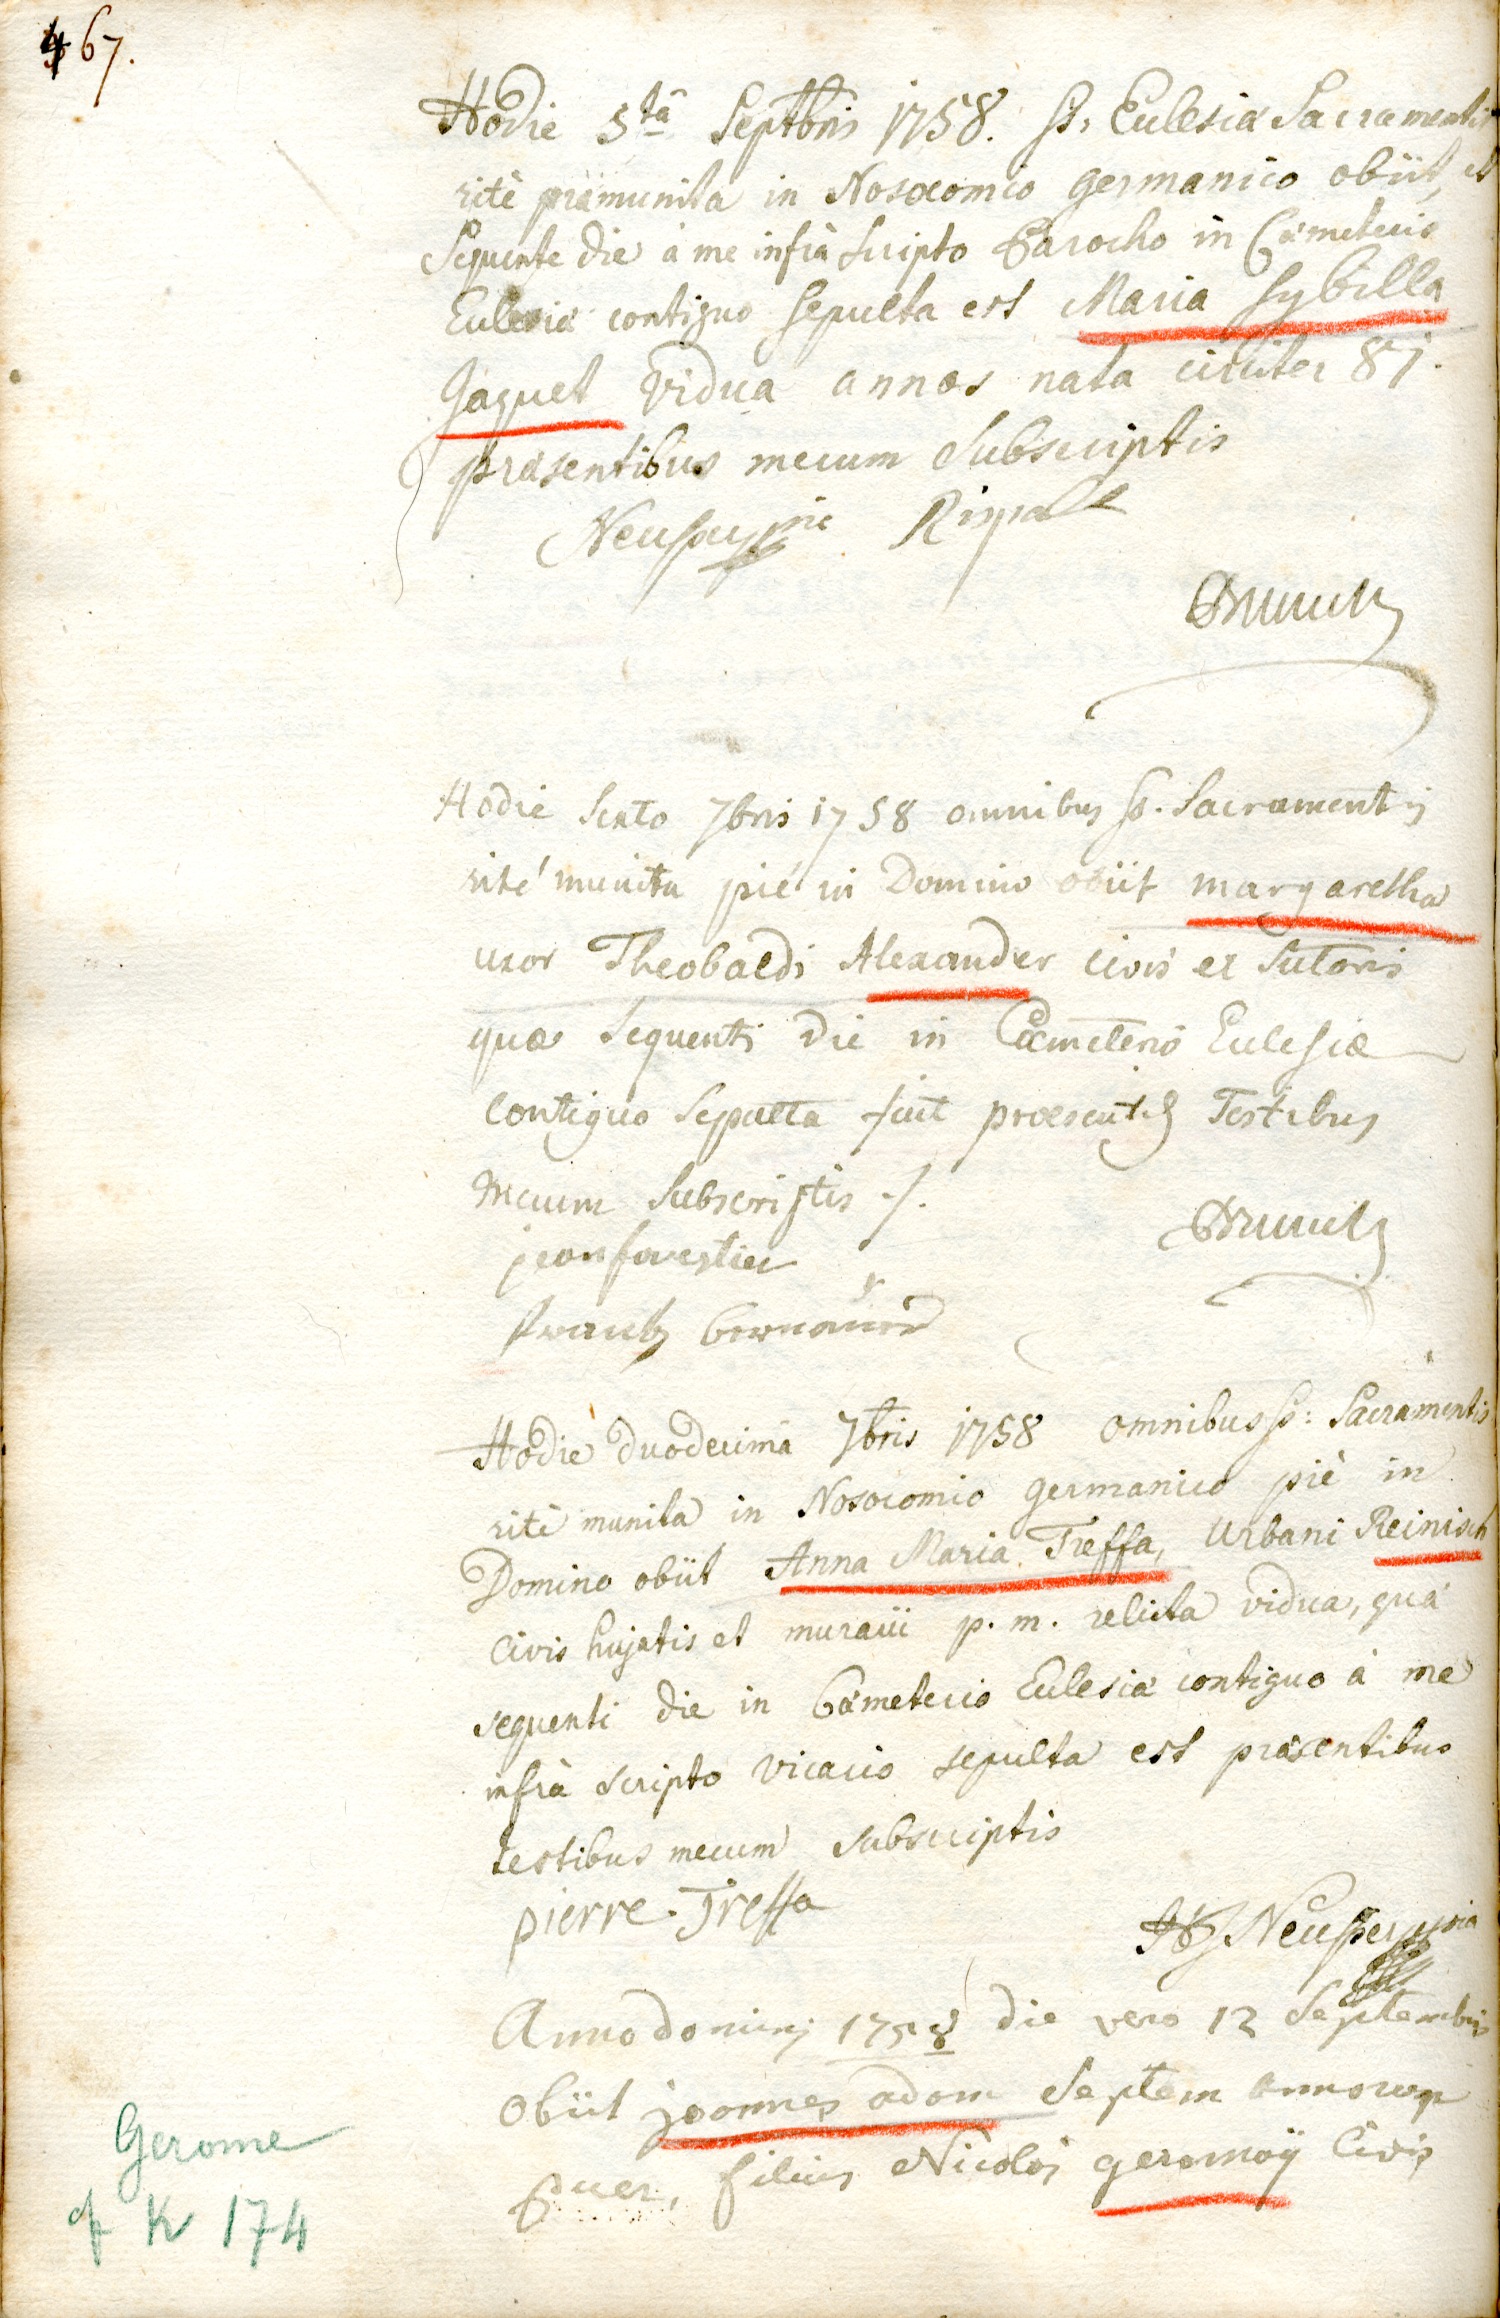 467.
Hodie 5tâ Septbris 1758. SS. Ecclesiæ Sacramentis
ritè præmunita in Nosocomio germanico obiit, et
Sequente die à me infrà scripto Parocho in Cœmeterio
Ecclesiæ contiguo sepulta est Maria Sybilla
Jaquet vidua annos nata circiter 81.
præsentibus mecum subscriptis
Rispal
Hodie Sexto 7bris 1758 omnibus SS. Sacramentis
rité munita pié in Domino obiit margaretha
uxor Theobaldi Alexander civis et sutoris
quæ sequenti die in Cœmeterio Ecclesiæ
contiguo sepulta fuit præsentib9 Testibus
mecum subscriptis ./.
jean forestier
frantz
Hodie duodecimâ 7bris 1758 omnibus SS: Sacramentis
ritè munita in Nosocomio germanico piè in
Domino obiit Anna Maria Treffa, Urbani Reinisch
Civis hujatis et murarii p. m. relicta vidua, quæ
sequenti die in Cœmeterio Ecclesiæ contiguo à me
infrà scripto vicario sepulta est præsentibus
testibus mecum subscriptis
pierre Treffa
Anno domini 1758 die vero 12 Septembris
Obiit joannes adam Septem annorum
puer, filius Nicolai geromÿ Civis
Gerome
cf K 174